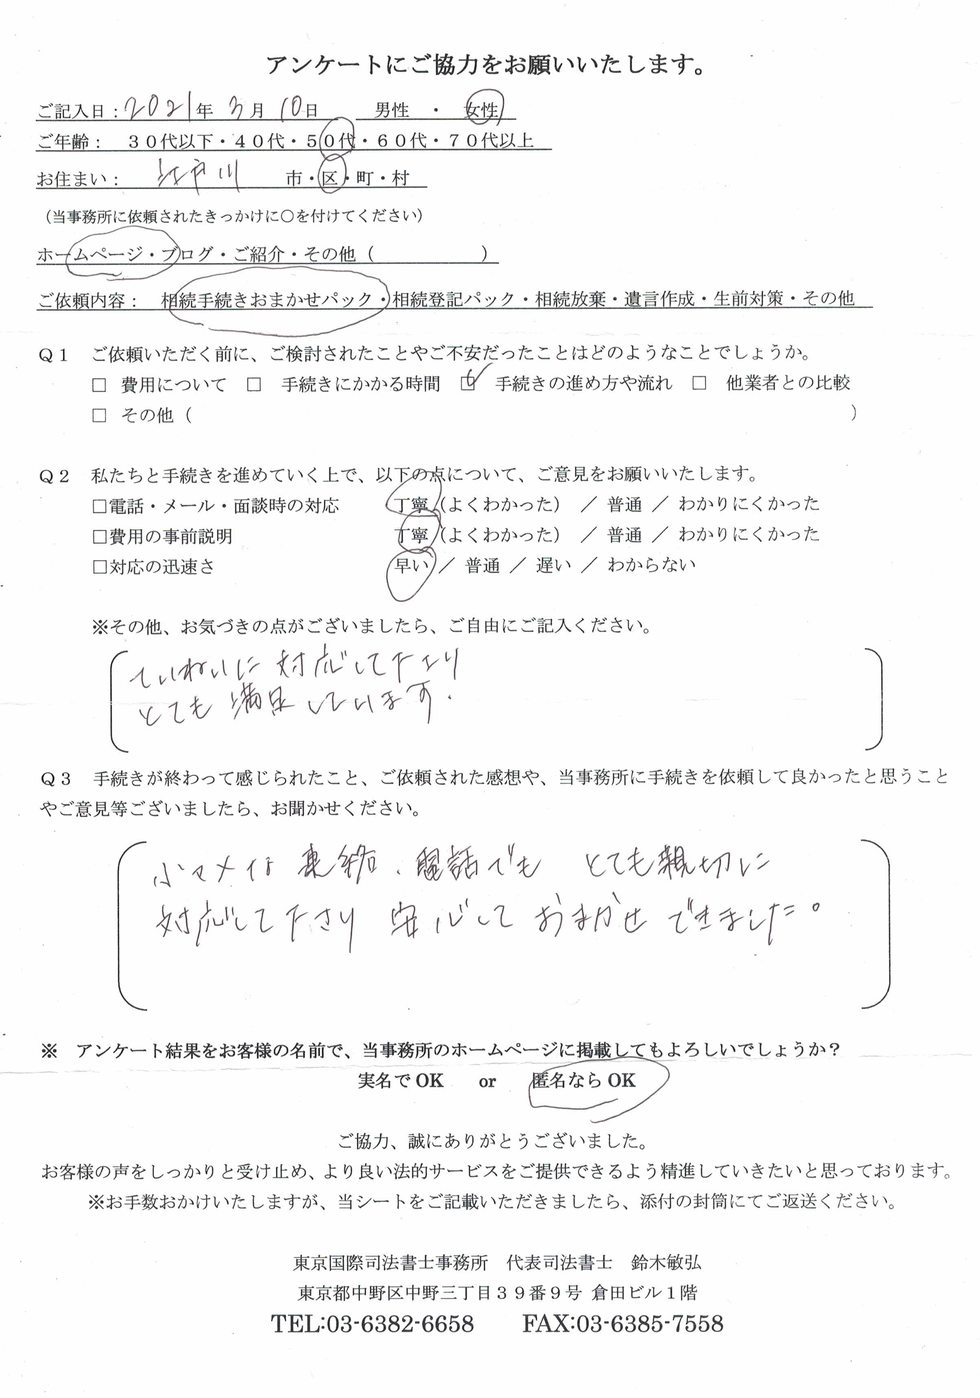 アンケートにご協力をお願いいたします。
ご記入日：2021年 3月 10日　男性　・　女性
ご年齢：　３０代以下・４０代・５０代・６０代・７０代以上
お住まい：　江戸川　市・区・町・村
（当事務所に依頼されたきっかけに○を付けてください）
ホームページ・ブログ・ご紹介・その他（　　　　　　）
ご依頼内容：　相続手続きおまかせパック・相続登記パック・相続放棄・遺言作成・生前対策・その他
Ｑ１　ご依頼いただく前に、ご検討されたことやご不安だったことはどのようなことでしょうか。
□ 費用について　□ 手続きにかかる時間　☑ 手続きの進め方や流れ　□ 他業者との比較
□ その他（　　　　　　）
Ｑ２　私たちと手続きを進めていく上で、以下の点について、ご意見をお願いいたします。
□電話・メール・面談時の対応　丁寧（よくわかった）　／　普通　／　わかりにくかった
□費用の事前説明　丁寧（よくわかった）　／　普通　／　わかりにくかった
□対応の迅速さ　早い　／　普通　／　遅い　／　わからない
※その他、お気づきの点がございましたら、ご自由にご記入ください。
ていねいに 対応して下さり
とても 満足しています.
Ｑ３　手続きが終わって感じられたこと、ご依頼された感想や、当事務所に手続きを依頼して良かったと思うこと
やご意見等ございましたら、お聞かせください。
小マメな 連絡、電話でも　とても親切に
対応して下さり 安心して おまかせ できました。
※　アンケート結果をお客様の名前で、当事務所のホームページに掲載してもよろしいでしょうか？
実名で OK　　or　　匿名なら OK
ご協力、誠にありがとうございました。
お客様の声をしっかりと受け止め、より良い法的サービスをご提供できるよう精進していきたいと思っております。
※お手数おかけいたしますが、当シートをご記載いただきましたら、添付の封筒にてご返送ください。
東京国際司法書士事務所　代表司法書士　鈴木敏弘
東京都中野区中野三丁目３９番９号 倉田ビル１階
TEL:03-6382-6658　　FAX:03-6385-7558